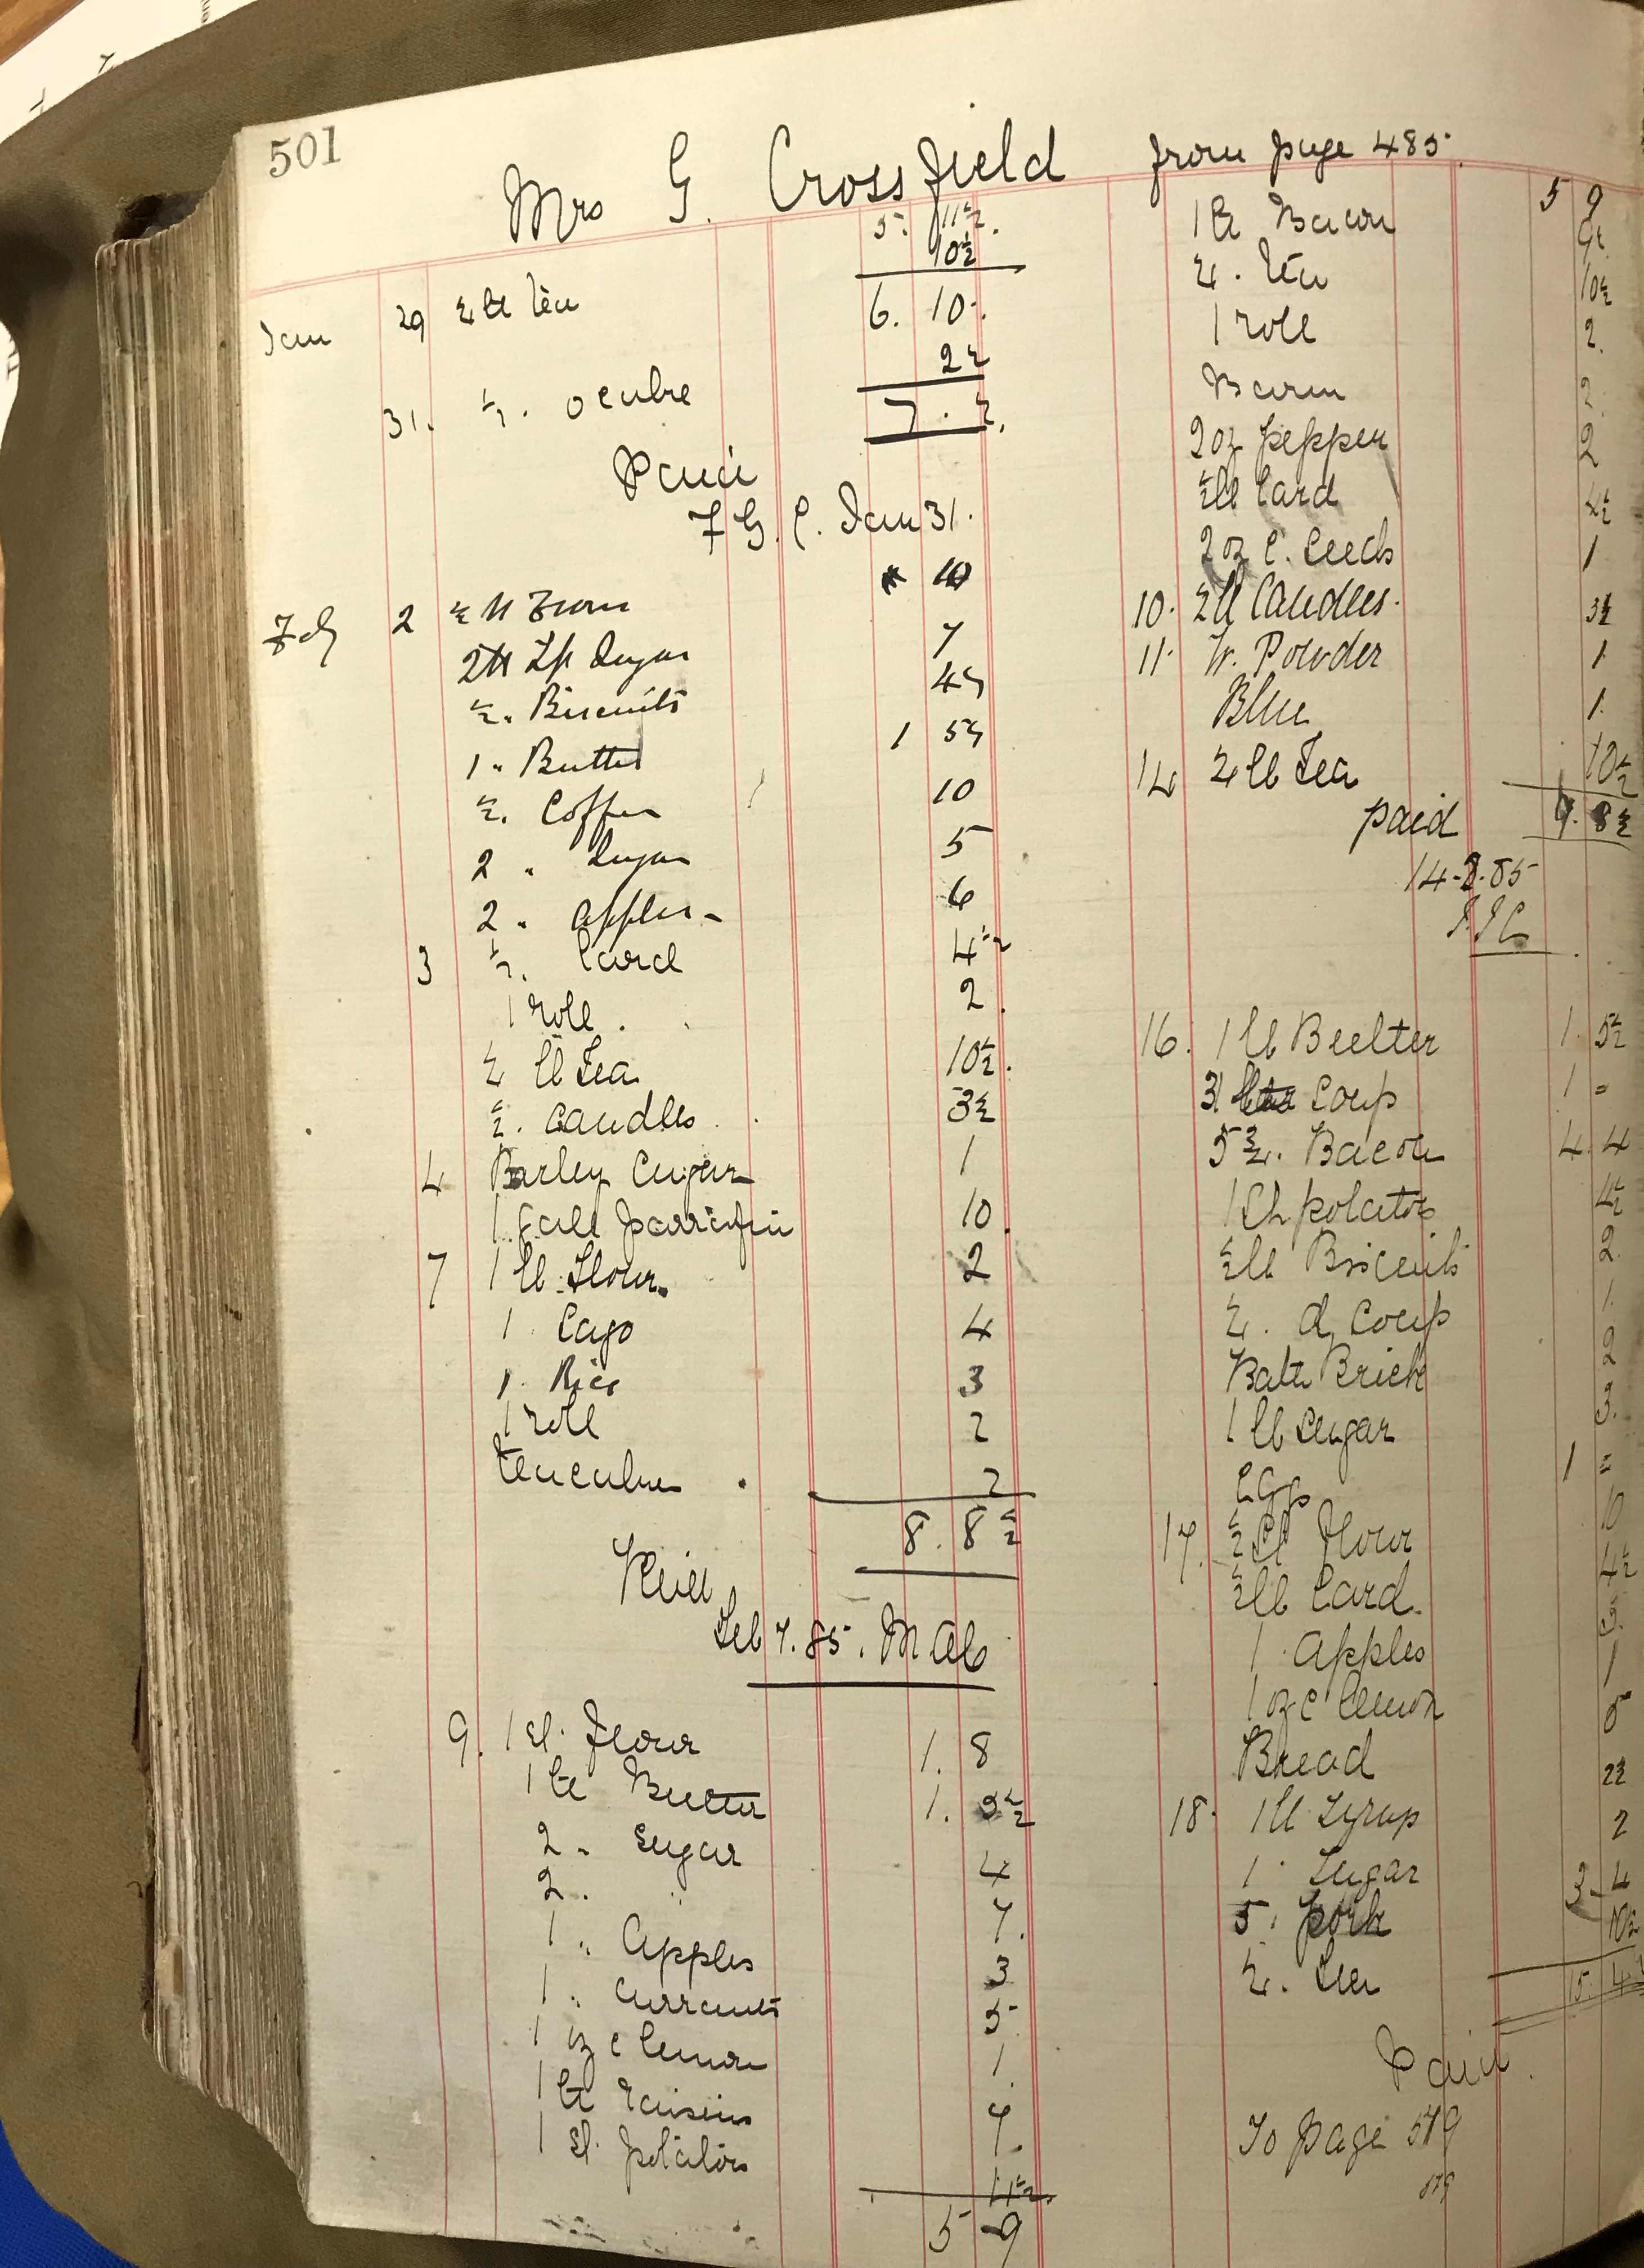 501
Mrs G. Crossfield from page 485
5. 11½
10½
Jan 29 ¼ lb Tea 6. 10.
2½
31. ½.
7. ½.
Paid
F G. C. Jan 31.
Feb 2 ½ lb 10
2 lb Lp Sugar 7
½. Biscuits 4½
1 " Butter 1 5½
½. Coffee 10
2 " Sugar 5
2 " apples - 6
3 ½. Lard 4½
1 roll. 2
¼ lb Tea 10½.
½. Candles 3½
4 Barley Sugar 1
1 Gall parrafin 10
7 1 lb Flour. 2
1 Sago 4
1. Rice 3
1 roll 2
2
8. 8½
Paid
Feb 7. 85.
9. 1 St. Flour 1. 8
1 lb Butter 1. 5½
2 " Sugar 4
2 " " 7.
1 " Apples 3
1 " Currants 5
1 oz c lemon 1.
1 lb raisins 7.
1 St. potatoes 4½
5 9
5 9
1 lb Bacon 9
¼. Tea 10½
1 roll 2.
Barm 2.
2 oz pepper 2
½ lb Lard 4½
2 oz C. Seeds 1
10. ½ lb Candles. 3½
11. W. Powder 1.
Blue 1.
14 ¼ lb Tea 10½
paid 9. 8½
14-2-85
16. 1 lb Butter 1. 5½
3 Soup 1 =
5¾. Bacon 4. 4
1 St potatoes 4½
½ lb Biscuits 2.
¼. d, Soup 1.
Bath Brick 2
1 lb Sugar 3.
Eggs 1 =
17. ½ St Flour 10
½ lb Lard. 4½
1. Apples 3.
1 oz c lemon 1
Bread 5
18. 1 lb Syrup 2½
1. Sugar 2
5. pork 3- 4
¼. Tea 10½
15. 4
Paid.
To page 579
579